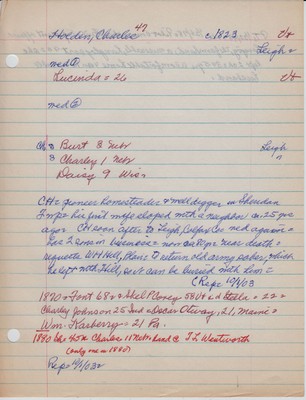 47
Holden, Charles c1823 c/o
Leigh=
med ①
Lucinda = 26 c/o
med ②
Ch 3 Burt 3 Nebr Leigh
3 Charley 1 Nebr "
Daisy 9 Wis
CH = pioneer homesteader & well digger in Sheridan
Twp = his first wife eloped with a neighbor ca 25 yrs
ago CH soon after to Leigh, Colfax Co = med again =
has 2 sons in business = now ca 80 yrs near death =
requests W H Hill, Mans to return old army saber, which
he left with Hill, so it can be buried with him =
(Rep = 10/1/03
1870 = Font 68 = & Shel P Corey 58 Vt & d Stella = 22 =
Charley Johnson 25 Ind = Oscar Otway, 21, Maine =
Wm. Kasberry = 21 Pa.
1880 Charles 11 Nebr hand @ T L Wentworth
(only one in 1880)
Rep = 10/1/03=